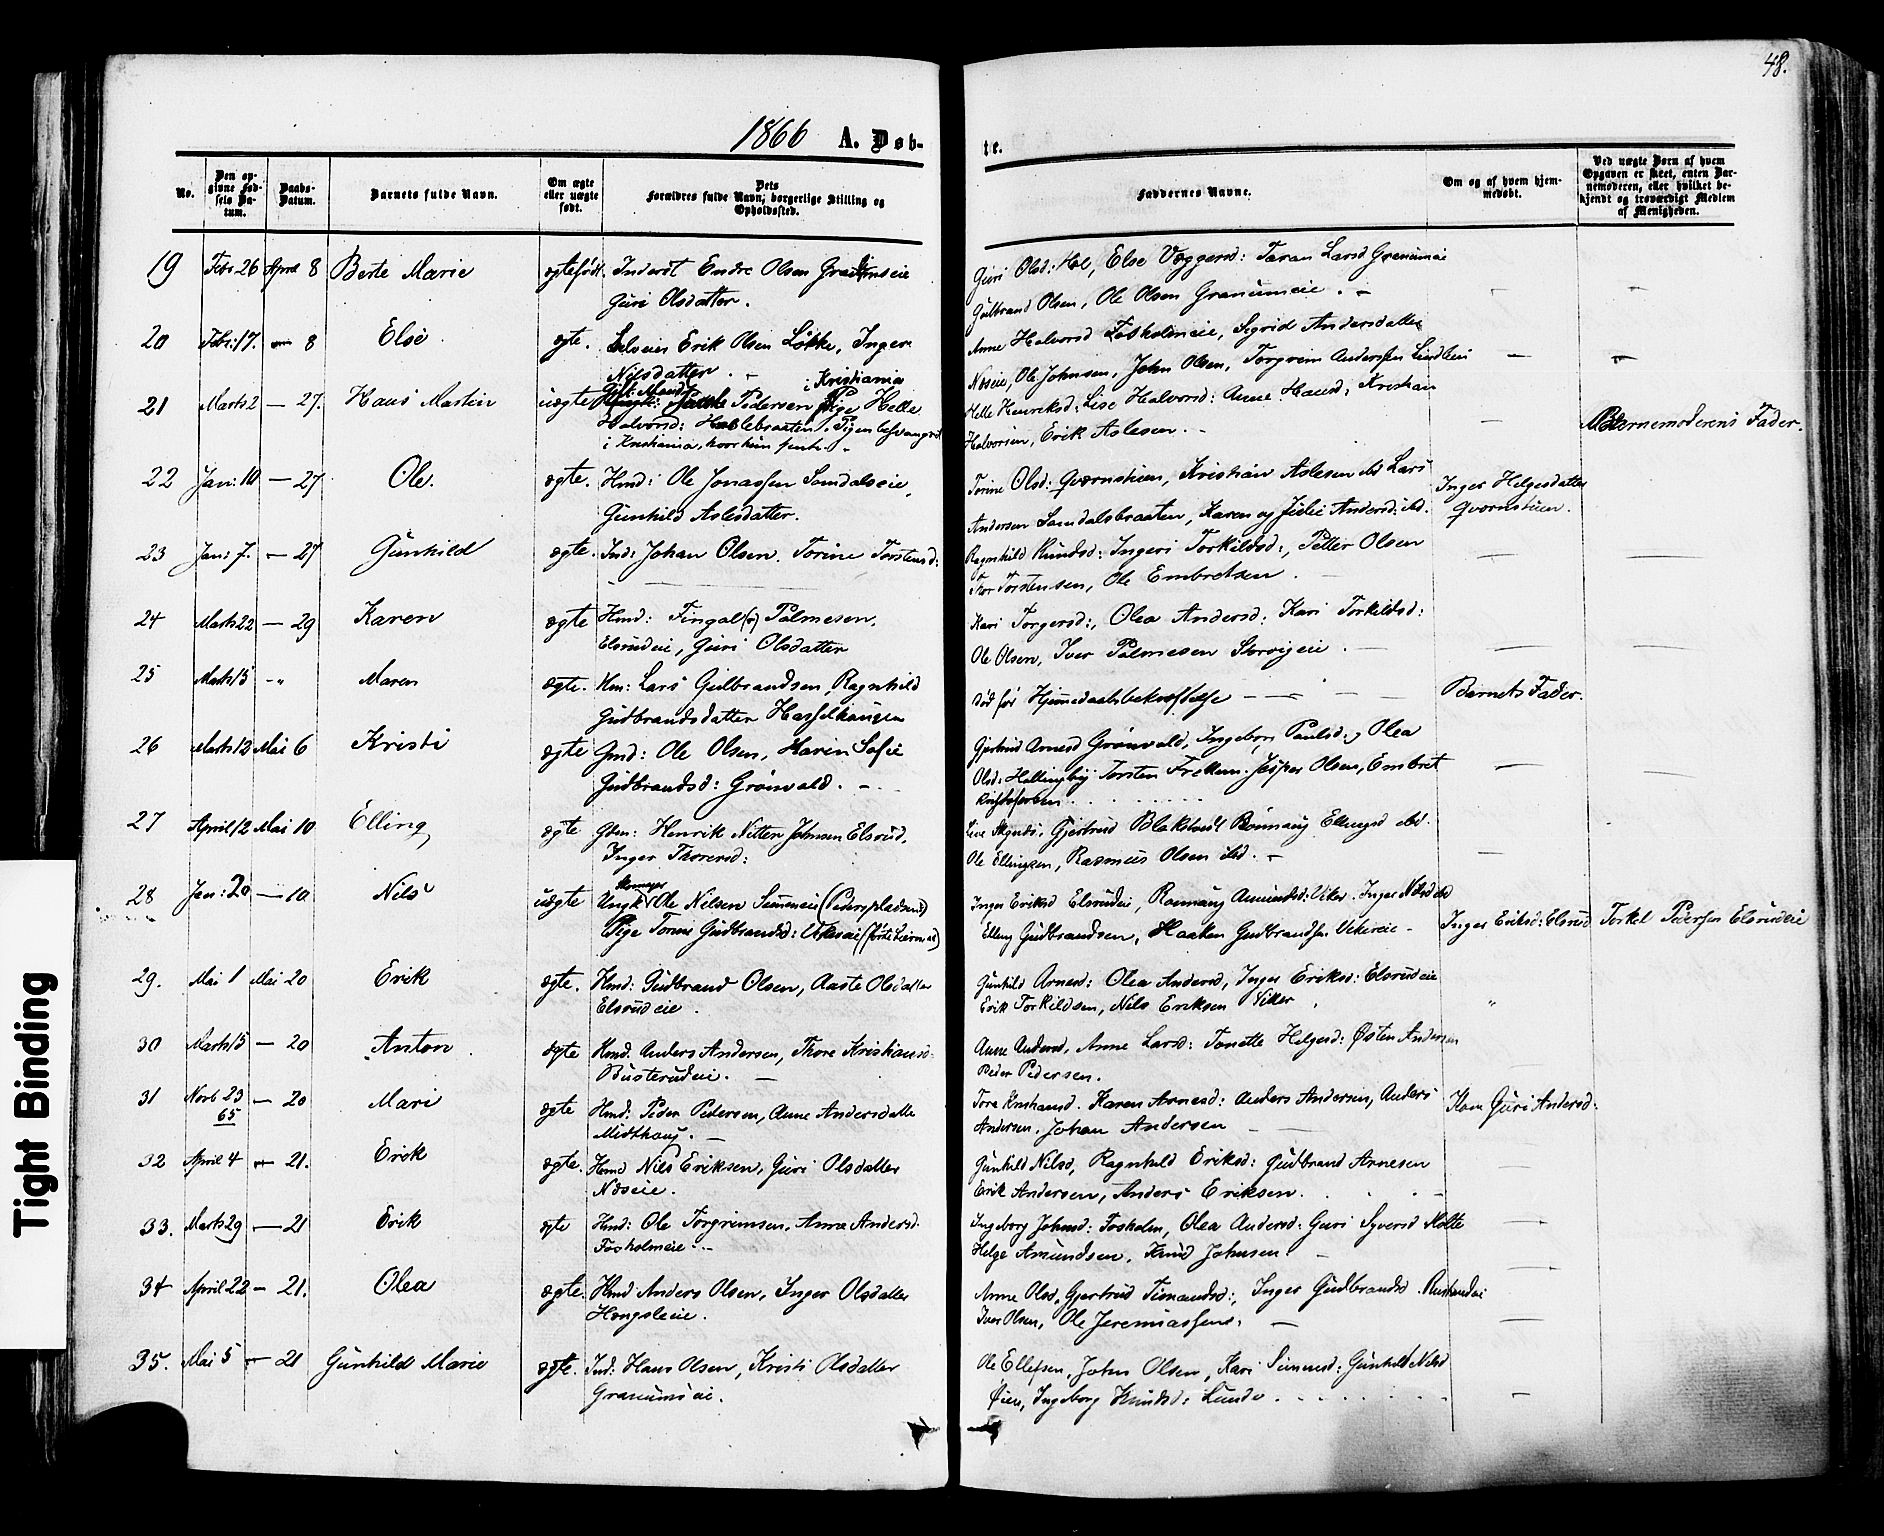 48.
1866 A. Døb-
te.
No.
Den op-
givne Fød-
sels Da-
tum.
Daabs-
Datum.
Barnets fulde Navn.
Om ægte
eller uægte
født.
Dets
Forældres fulde Navn, borgerlige Stilling og
Opholdssted.
Faddernes Navne.
Om og af hvem hjem-
medøbt.
Ved uægte Børn af hvem
Opgaven er skeet, enten Bar-
nemoderen, eller hvilket be-
kjendt og troværdigt Medlem
af Menigheden.
19 Febr 26 April 8 Berte Marie ægtefødt. Inderst Endre Olsen
Guri Olsdatter.
Guri Olsd: Hol, Else Væggersd: Taran Larsd Granumeie
Gulbrand Olsen, Ole Olsen Granumeie. –
20 Febr: 17. – 8 Else ægte. Selveier Erik Olsen Løkke, Inger
Nilsdatter. –
Anne Halvorsd Fosholmeie, Sigrid Andersdatter
Næseie, Ole Johnsen, John Olsen, Torgrim Anderssen Lindlien
21 Marts 2 – 27. Hans Martin uægte Gift Mand i Kristiania
Pedersen Pige Helle
Halvorsd: Haslebraaten. Pigen besvangret
i Kristiania, hvor hun tjente.
Helle Henriksd: Lise Halvorsd: Anne Hansd: Kristian
Halvorsen, Erik Aslesen. –
Barnemoderens Fader.
22 Jan: 10 – 27 Ole. ægte. Hmd: Ole Jonassen Samdalseie,
Gunhild Aslesdatter.
Torine Olsd: Qvernstuen, Kristian Aslesen ibd Lars
Andersen Samdalsbraaten, Karen og Julie Andersd: ibd.
Inger Helgesdatter
Qvernstuen.
23 Jan: 7. – 27 Gunhild ægte. Ind: Johan Olsen. Torine Torstensd:
Ragnhild Knudsd: Ingeri Torkildsd:, Petter Olsen
Thor Torstensen, Ole Embretsen.
24 Marts 22 – 29 Karen ægte Hmd: Fingal(?) Palmesen.
Elsrudeie, Guri Olsdatter
Kari Torgersd:, Olea Andersd: Kari Torkildsd:
Ole Olsen, Iver Palmesen Storvigeie. –
25 Marts 15 – " Maren ægte. Hm: Lars Gulbrandsen, Ragnhild
Gudbrandsdatter Hasselhaugen
død før Hjemmedaabsbekræftelse – – –
Barnets Fader.
26 Marts 12 Mai 6 Kristi ægte Gmd: Ole Olsen, Karin Sofie
Gudbrandsd: Grønvold. –
Gjertrud Arnesd Grønvold, Ingeborg Paulsd:, Olea
Olsd: Hallingby Torsten Jesper Olsen, Embret
Kristoffersen.
27 April 12 Mai 10 Elling ægte Gbm: Henrik Nitter Johnsen Elsrud,
Inger Thoresd:
Gjertrud Blakstvedt Rønnaug Ellingsd ibd.
Ole Ellingsen, Rasmus Olsen ibd. –
28 Jan: 20 – 10 Nils uægte Ungk Ole Nilsen Semmeie (Pederspladsen)
Pige Torine Gudbrandsd: Vekereie (første Leiermaal)
Inger Eriksd Elsrudeie, Rønnaug Amundsd: Veker. Inger Nilsd ibd
Elling Gudbrandsen, Haaken Gudbrandsen Vekereie –
Inger Eriksd: Elsrud
Torkel Pedersen Elsrudeie
29. Mai 1 Mai 20 Erik ægte. Hmd: Gudbrand Olsen, Aaste Olsdatter
Elsrudeie.
Gunhild Arnesd: Olea Andersd, Inger Eriksd: Elsrudeie
Erik Torkildsen, Nils Eriksen Veker
30 Marts 15 – 20 Anton ægte Hmd. Anders Andersen, Thore Kristiansd:
Busterudeie. –
Anne Andersd, Anne Larsd: Tonette Helgesd: Østen Andersen
Peder Pedersen.
31 Novb 23
65 – 20 Mari ægte Hmd: Peder Pedersen, Anne Andersdatter
Midthaug. –
Tore Kristiansd. Karen Arnesd: Anders Andersen, Anders
Andersen, Johan Andersen
Kone Guri Andersd:
32 April 4 – 21. Erik ægte. Hmd Nils Eriksen, Guri Olsdatter
Næseie.
Gunhild Nilsd, Ragnhild Eriksd: Gudbrand Arnesen
Erik Andersen, Anders Eriksen.
33. Marts 29 – 21 Erik ægte Hmd: Ole Torgrimsen, Anne Andersd.
Fosholmeie. –
Ingeborg Johnsd: Fosholm, Olea Andersd: Guri Syversd Molte
Helge Amundsen, Knud Johnsen –
34 April 22 – 21. Olea ægte. Hmd Anders Olsen, Inger Olsdatter
Hongsleeie.
Anne Olsd, Gjertrud Simensd:, Inger Gudbrandsd.
Iver Olsen, Ole Jeremiassen. –
35. Mai 5 – 21 Gunhild Marie ægte. Ind: Hans Olsen, Kristi Olsdatter
Granumseie.
Ole Ellefsen, John Olsen, Kari Simensd: Gunhild Nilsd
Øien, Ingeborg Knudsd: Lunde.
Tight Binding